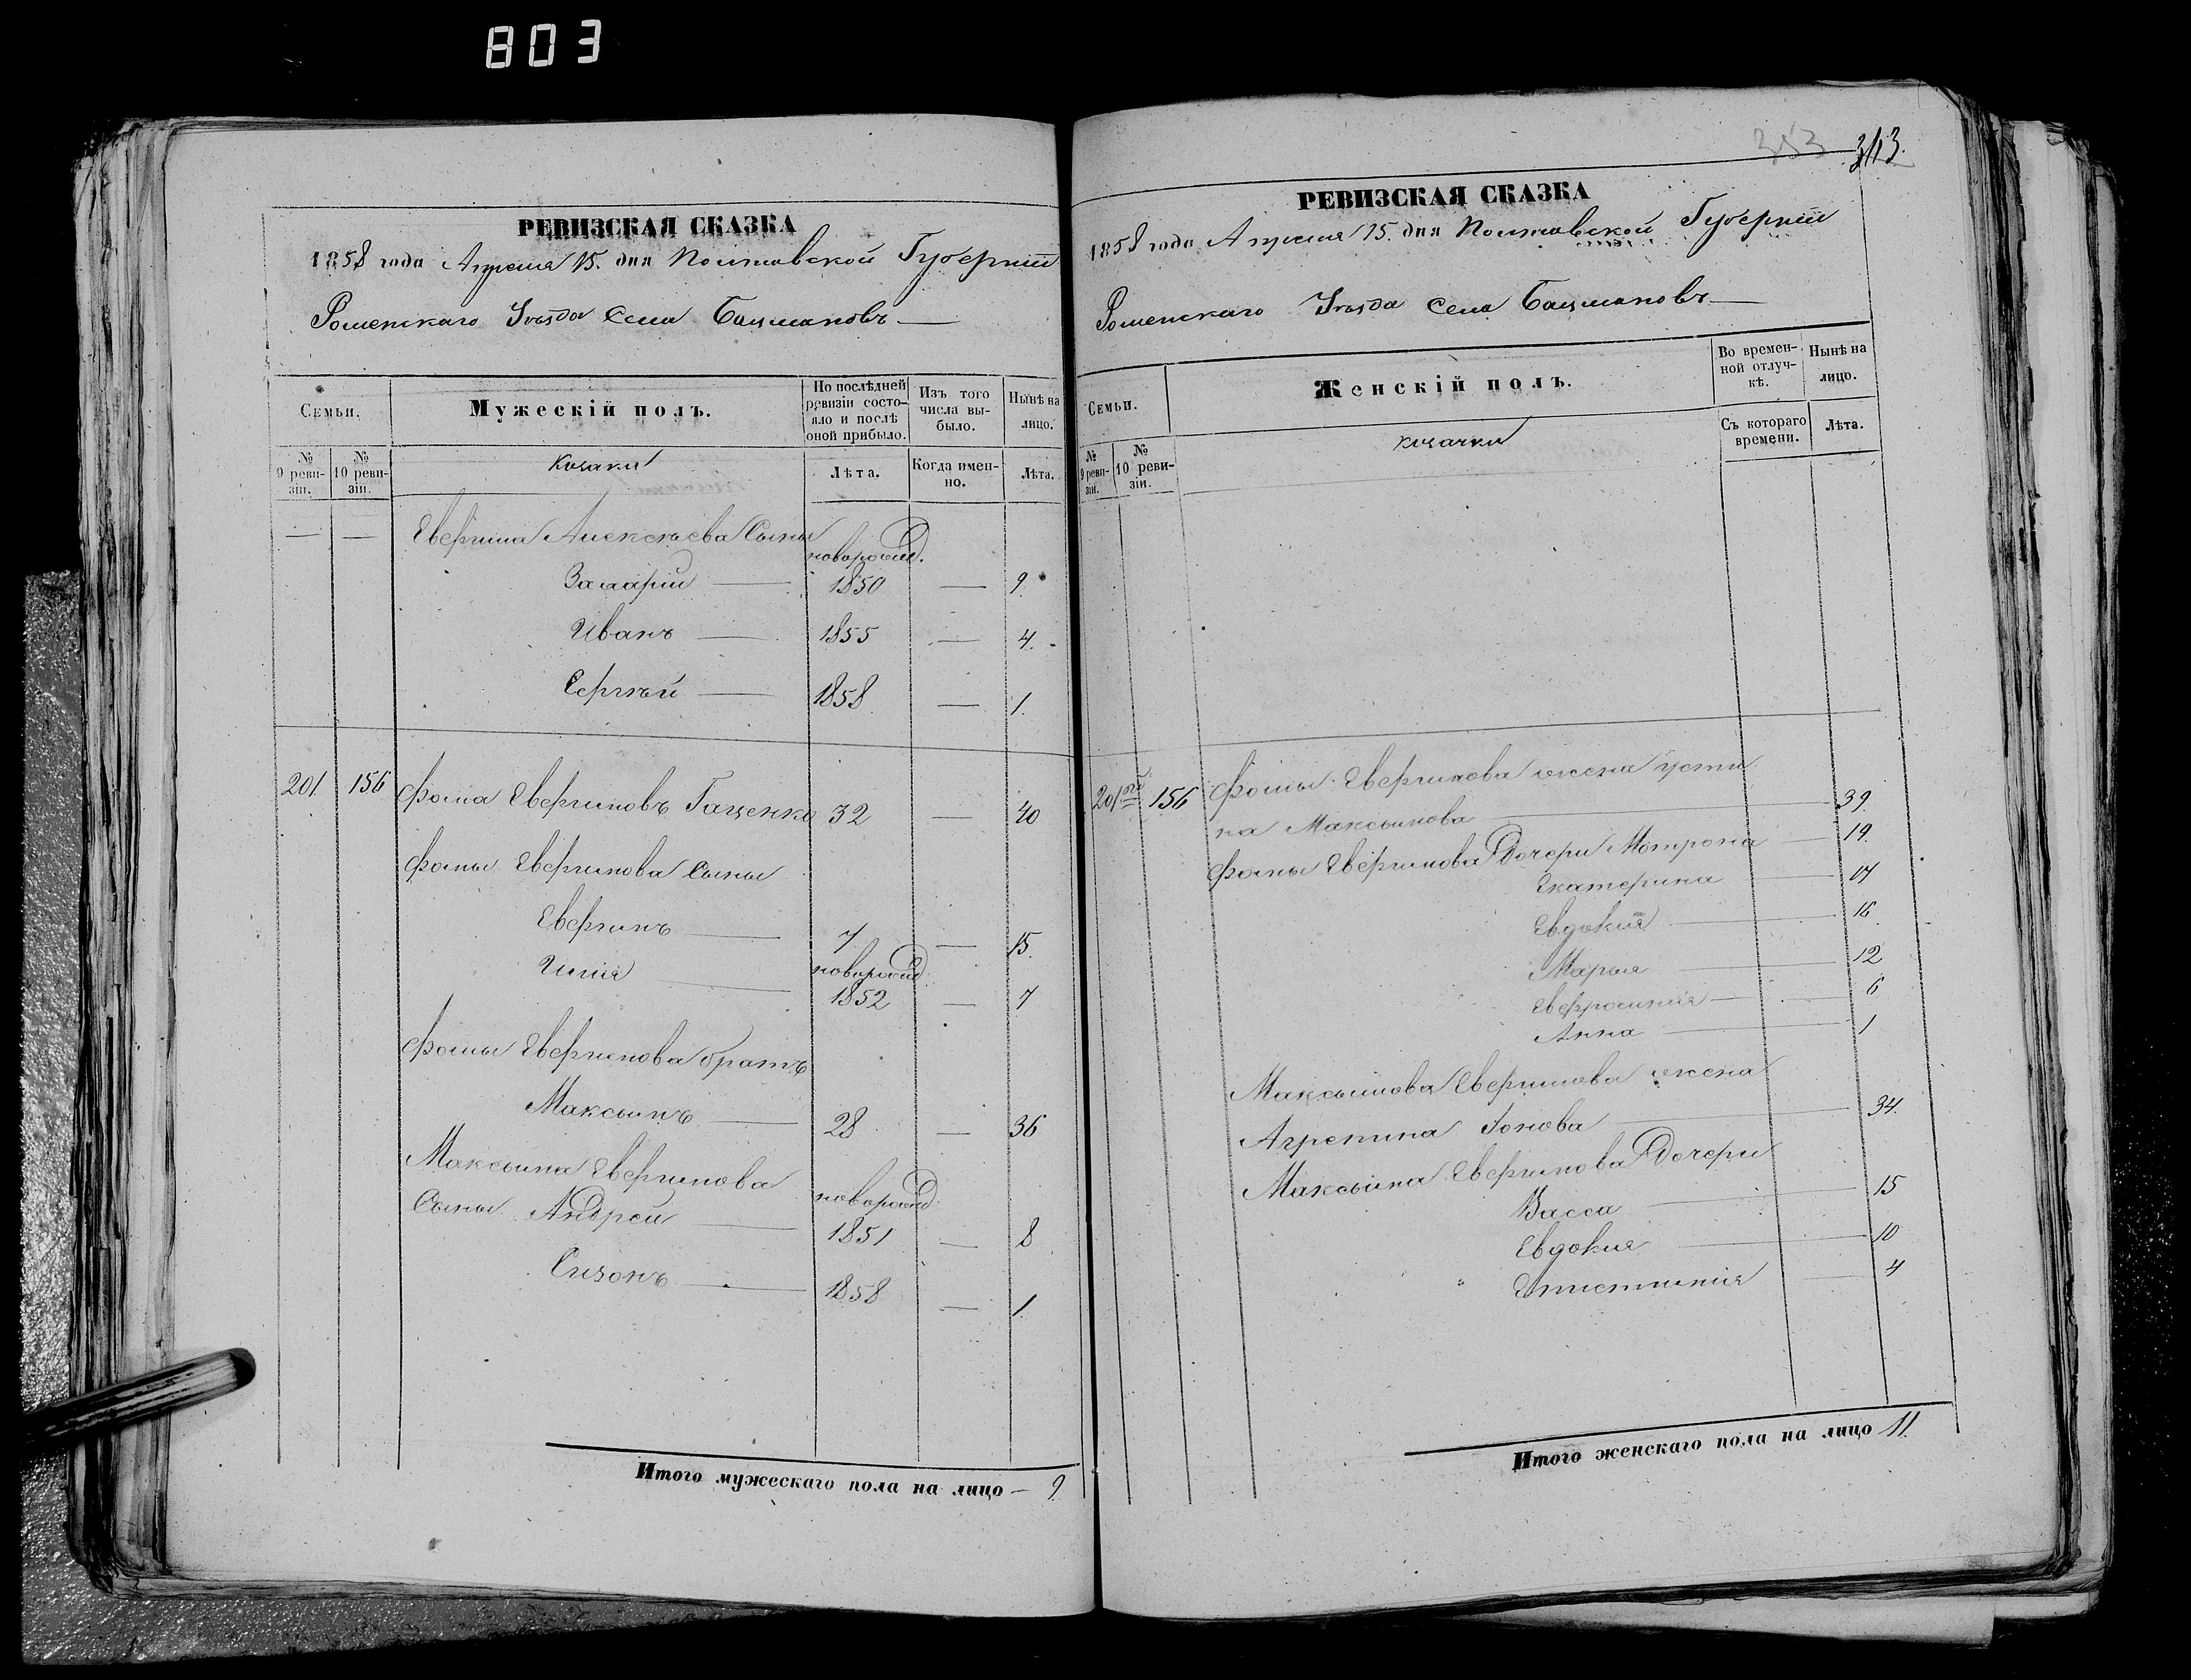 803
РЕВИЗСКАЯ СКАЗКА
1858 года Апреля 15. дня Полтавской Губернии
Роменскаго Уѣзда Села Бацмановъ
Семьи.
Мужескій полъ.
По послѣдней ревизіи состояло и послѣ оной прибыло.
Изъ того числа выбыло.
Нынѣ на лицо.
№ 9 ревизіи.
№ 10 ревизіи.
козаки
Лѣта.
Когда именно.
Лѣта.
— — Евергина Алексѣева Сыны новорожд.
Захарій — 1850 — 9.
Иванъ — 1855 — 4.
Сергѣй — 1858 — 1.
201. 156 Фома Евергиновъ Гаценко 32 — 40
Фомы Евергинова Сыны
Евергинъ — 7 — 15.
Илья — новорожд. 1852 — 7
Фомы Евергинова братъ
Максимъ — 28 — 36
Максима Евергинова
Сыны Андрей — новорожд. 1851 — 8
Сизонъ — 1858 — 1.
Итого мужескаго пола на лицо — 9.
353 343.
РЕВИЗСКАЯ СКАЗКА
1858 года Апреля 15. дня Полтавской Губернии
Роменскаго Уѣзда Села Бацмановъ
Семьи.
Женскій полъ.
Во временной отлучкѣ.
Нынѣ на лицо.
№ 9 ревизіи.
№ 10 ревизіи.
козачки
Съ котораго времени.
Лѣта.
201 156 Фомы Евергинова жена Усти
на Максимова — 39.
Фомы Евергинова Дочери Мотрона — 19.
Екатерина — 17
Евдокия — 16.
Марья — 12
Евфросиния — 6
Анна — 1
Максимова Евергинова жена
Агрепина Іонова — 34.
Максима Евергинова Дочери
Васса — 15
Евдокия — 10
Епистиния — 4
Итого женскаго пола на лицо 11.